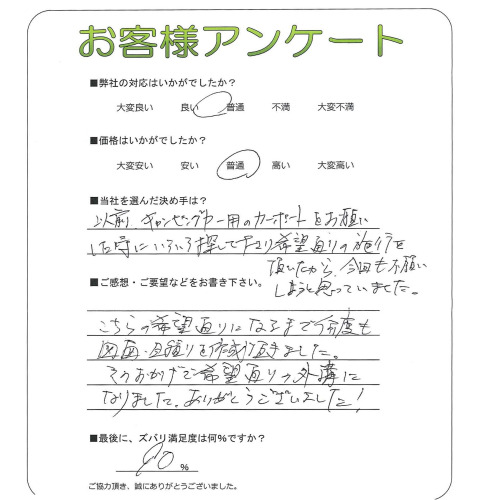 お客様アンケート
■弊社の対応はいかがでしたか？
大変良い 良い 普通 不満 大変不満
■価格はいかがでしたか？
大変安い 安い 普通 高い 大変高い
■当社を選んだ決め手は？
以前、キャンピングカー用のカーポートをお願い
した時にいろいろ探して下さり希望通りの施行を
頂いたから、今回もお願い
しようと思っていました。
■ご感想・ご要望などをお書き下さい。
こちらの希望通りになるまで何度も
図面・見積りを作成頂きました。
そのおかげで希望通りの外構に
なりました。ありがとうございました！
■最後に、ズバリ満足度は何％ですか？
90 ％
ご協力頂き、誠にありがとうございました。